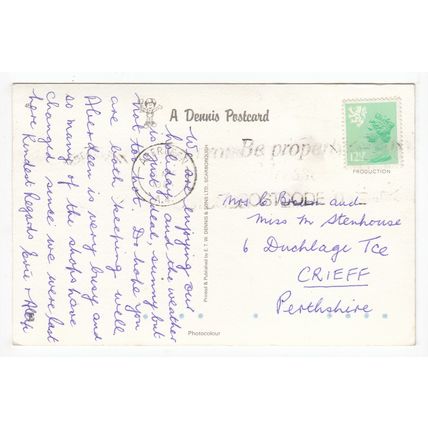 A Dennis Postcard
We are enjoying our
holiday and the weather
is just ideal, sunny but
not to hot. Do hope you
are both keeping well
Aberdeen is very busy and
so many of the shops have
changed since we were last
here Kindest Regards
Printed & Published by E. T. W. DENNIS & SONS LTD., SCARBOROUGH
Photocolour
Be proper
POSTCODE
12½P
PRODUCTION
and
Miss M Stenhouse
6 Duchlage Tce
CRIEFF
Perthshire